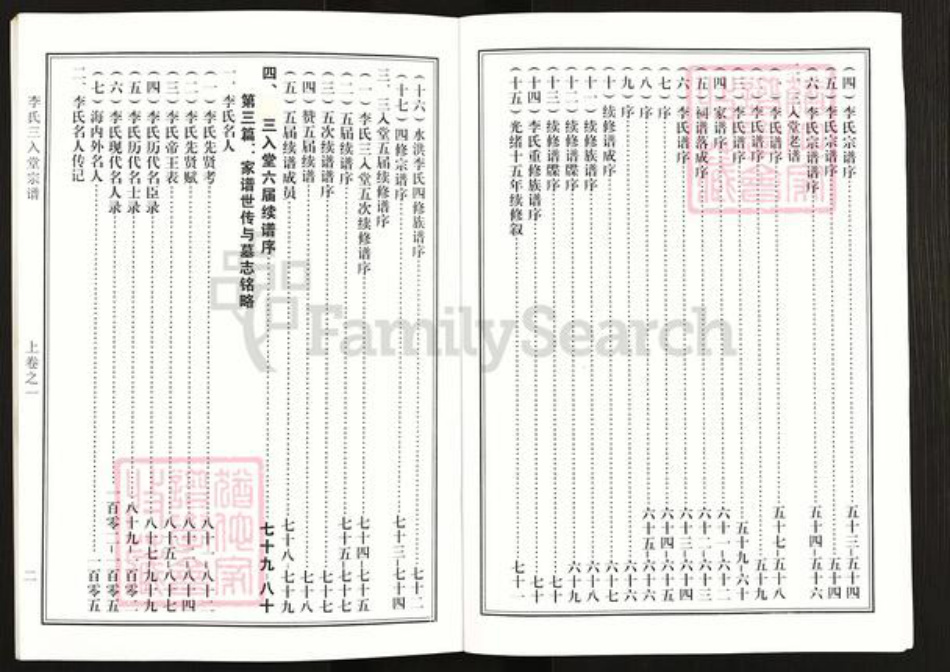 （四）李氏宗谱序……五十三–五十四
（五）李氏宗谱序……五十四
（六）李氏宗谱序……五十四–五十六
二、三入堂老谱
李氏谱序……五十七–五十八
李氏谱序……五十九
李氏谱序……五十九–六十
（四）家谱序……六十一–六十二
（五）祠谱落成序……六十二–六十三
（六）李氏谱序……六十三–六十五
（七）序……六十四–六十六
（八）序……六十五–六十六
（九）序……六十七
（十）续修谱成序……六十七
（十一）续修族谱序……六十八
（十二）续修谱牒序……六十九
（十三）续修谱牒序……七十
（十四）李氏重修族谱序……七十
（十五）光绪十五年续修叙……七十一
（十六）水洪李氏四修族谱序……七十二
（十七）四修宗谱序……七十三–七十四
三、三入堂五届续修谱序
（一）李氏三入堂五次续修谱序……七十四–七十五
（二）五届续谱序……七十五–七十七
（三）五次续谱谱序……七十七
（四）赞五届续谱……七十八
（五）五届续谱成员……七十八–七十九
四、三入堂六届续谱序……七十九–八十
第三篇、家谱世传与墓志铭略
一、李氏名人
（一）李氏先贤考……八十一–八十二
（二）李氏先贤赋……八十二–八十四
（三）李氏帝王表……八十五–八十七
（四）李氏历代名臣录……八十七–八十九
（五）李氏历代名士录……八十九–一百零二
（六）李氏现代名人录……一百零二–一百零五
（七）海内外名人……一百零五
二、李氏名人传记
李氏三入堂宗谱
上卷之一
二
FamilySearch